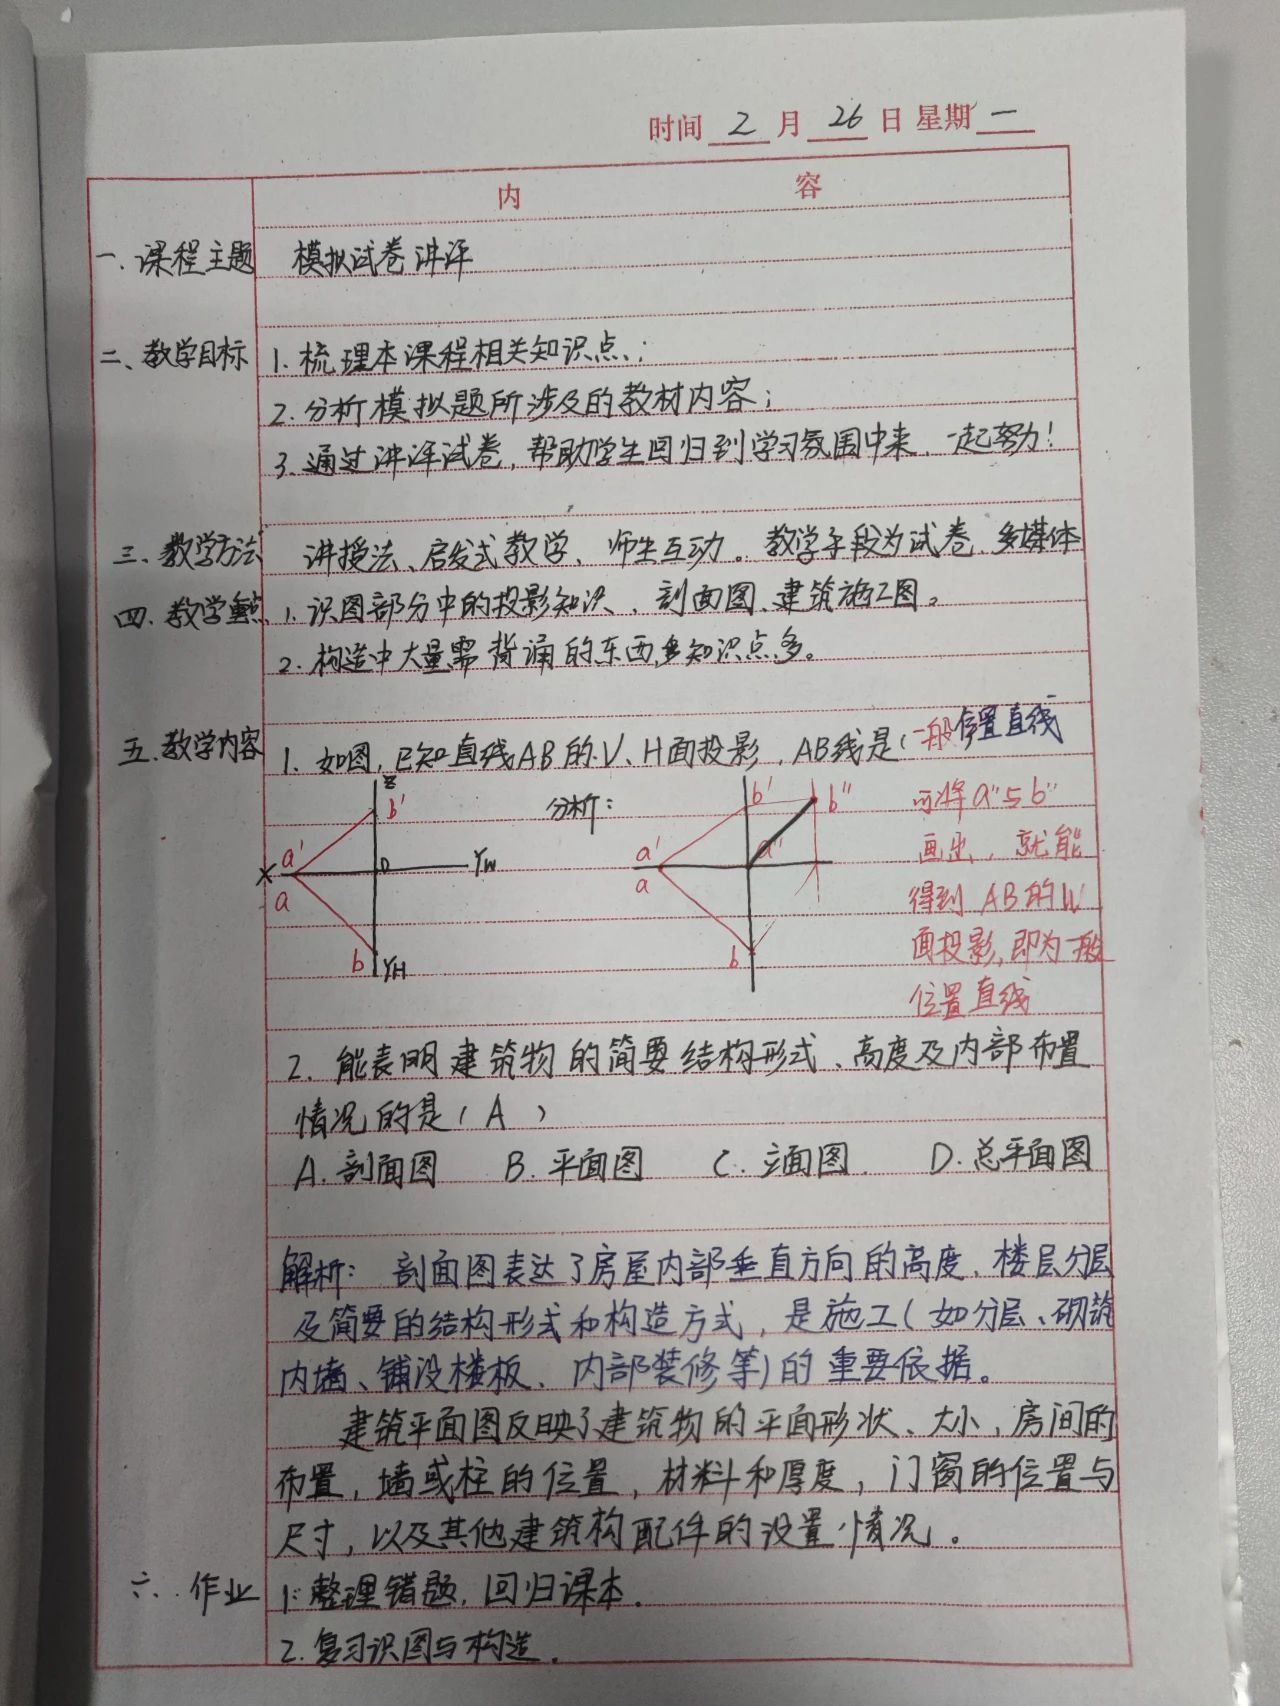 时间 2 月 26 日 星期 一
内 容
一、课程主题 模拟试卷讲评
二、教学目标 1. 梳理本课程相关知识点；
2. 分析模拟题所涉及的教材内容；
3. 通过讲评试卷，帮助学生回归到学习氛围中来，一起努力！
三、教学方法 讲授法、启发式教学、师生互动。教学手段为试卷、多媒体
四、教学重点 1. 识图部分中的投影知识、剖面图、建筑施工图。
2. 构造中大量需背诵的东西多知识点多。
五、教学内容 1. 如图，已知直线AB的V、H面投影，AB线是（一般位置直线
Z b' a' X a O YW b YH
分析：
b' b'' a' a a'' b
可将a''与b''
画出，就能
得到AB的W
面投影，即为一般
位置直线
2. 能表明建筑物的简要结构形式、高度及内部布置
情况的是（A）
A. 剖面图 B. 平面图 C. 立面图. D. 总平面图
解析：剖面图表达了房屋内部垂直方向的高度、楼层分层
及简要的结构形式和构造方式，是施工（如分层、砌筑
内墙、铺设楼板、内部装修等）的重要依据。
建筑平面图反映了建筑物的平面形状、大小，房间的
布置，墙或柱的位置，材料和厚度，门窗的位置与
尺寸，以及其他建筑构配件的设置情况。
六、作业 1. 整理错题，回归课本.
2. 复习识图与构造.